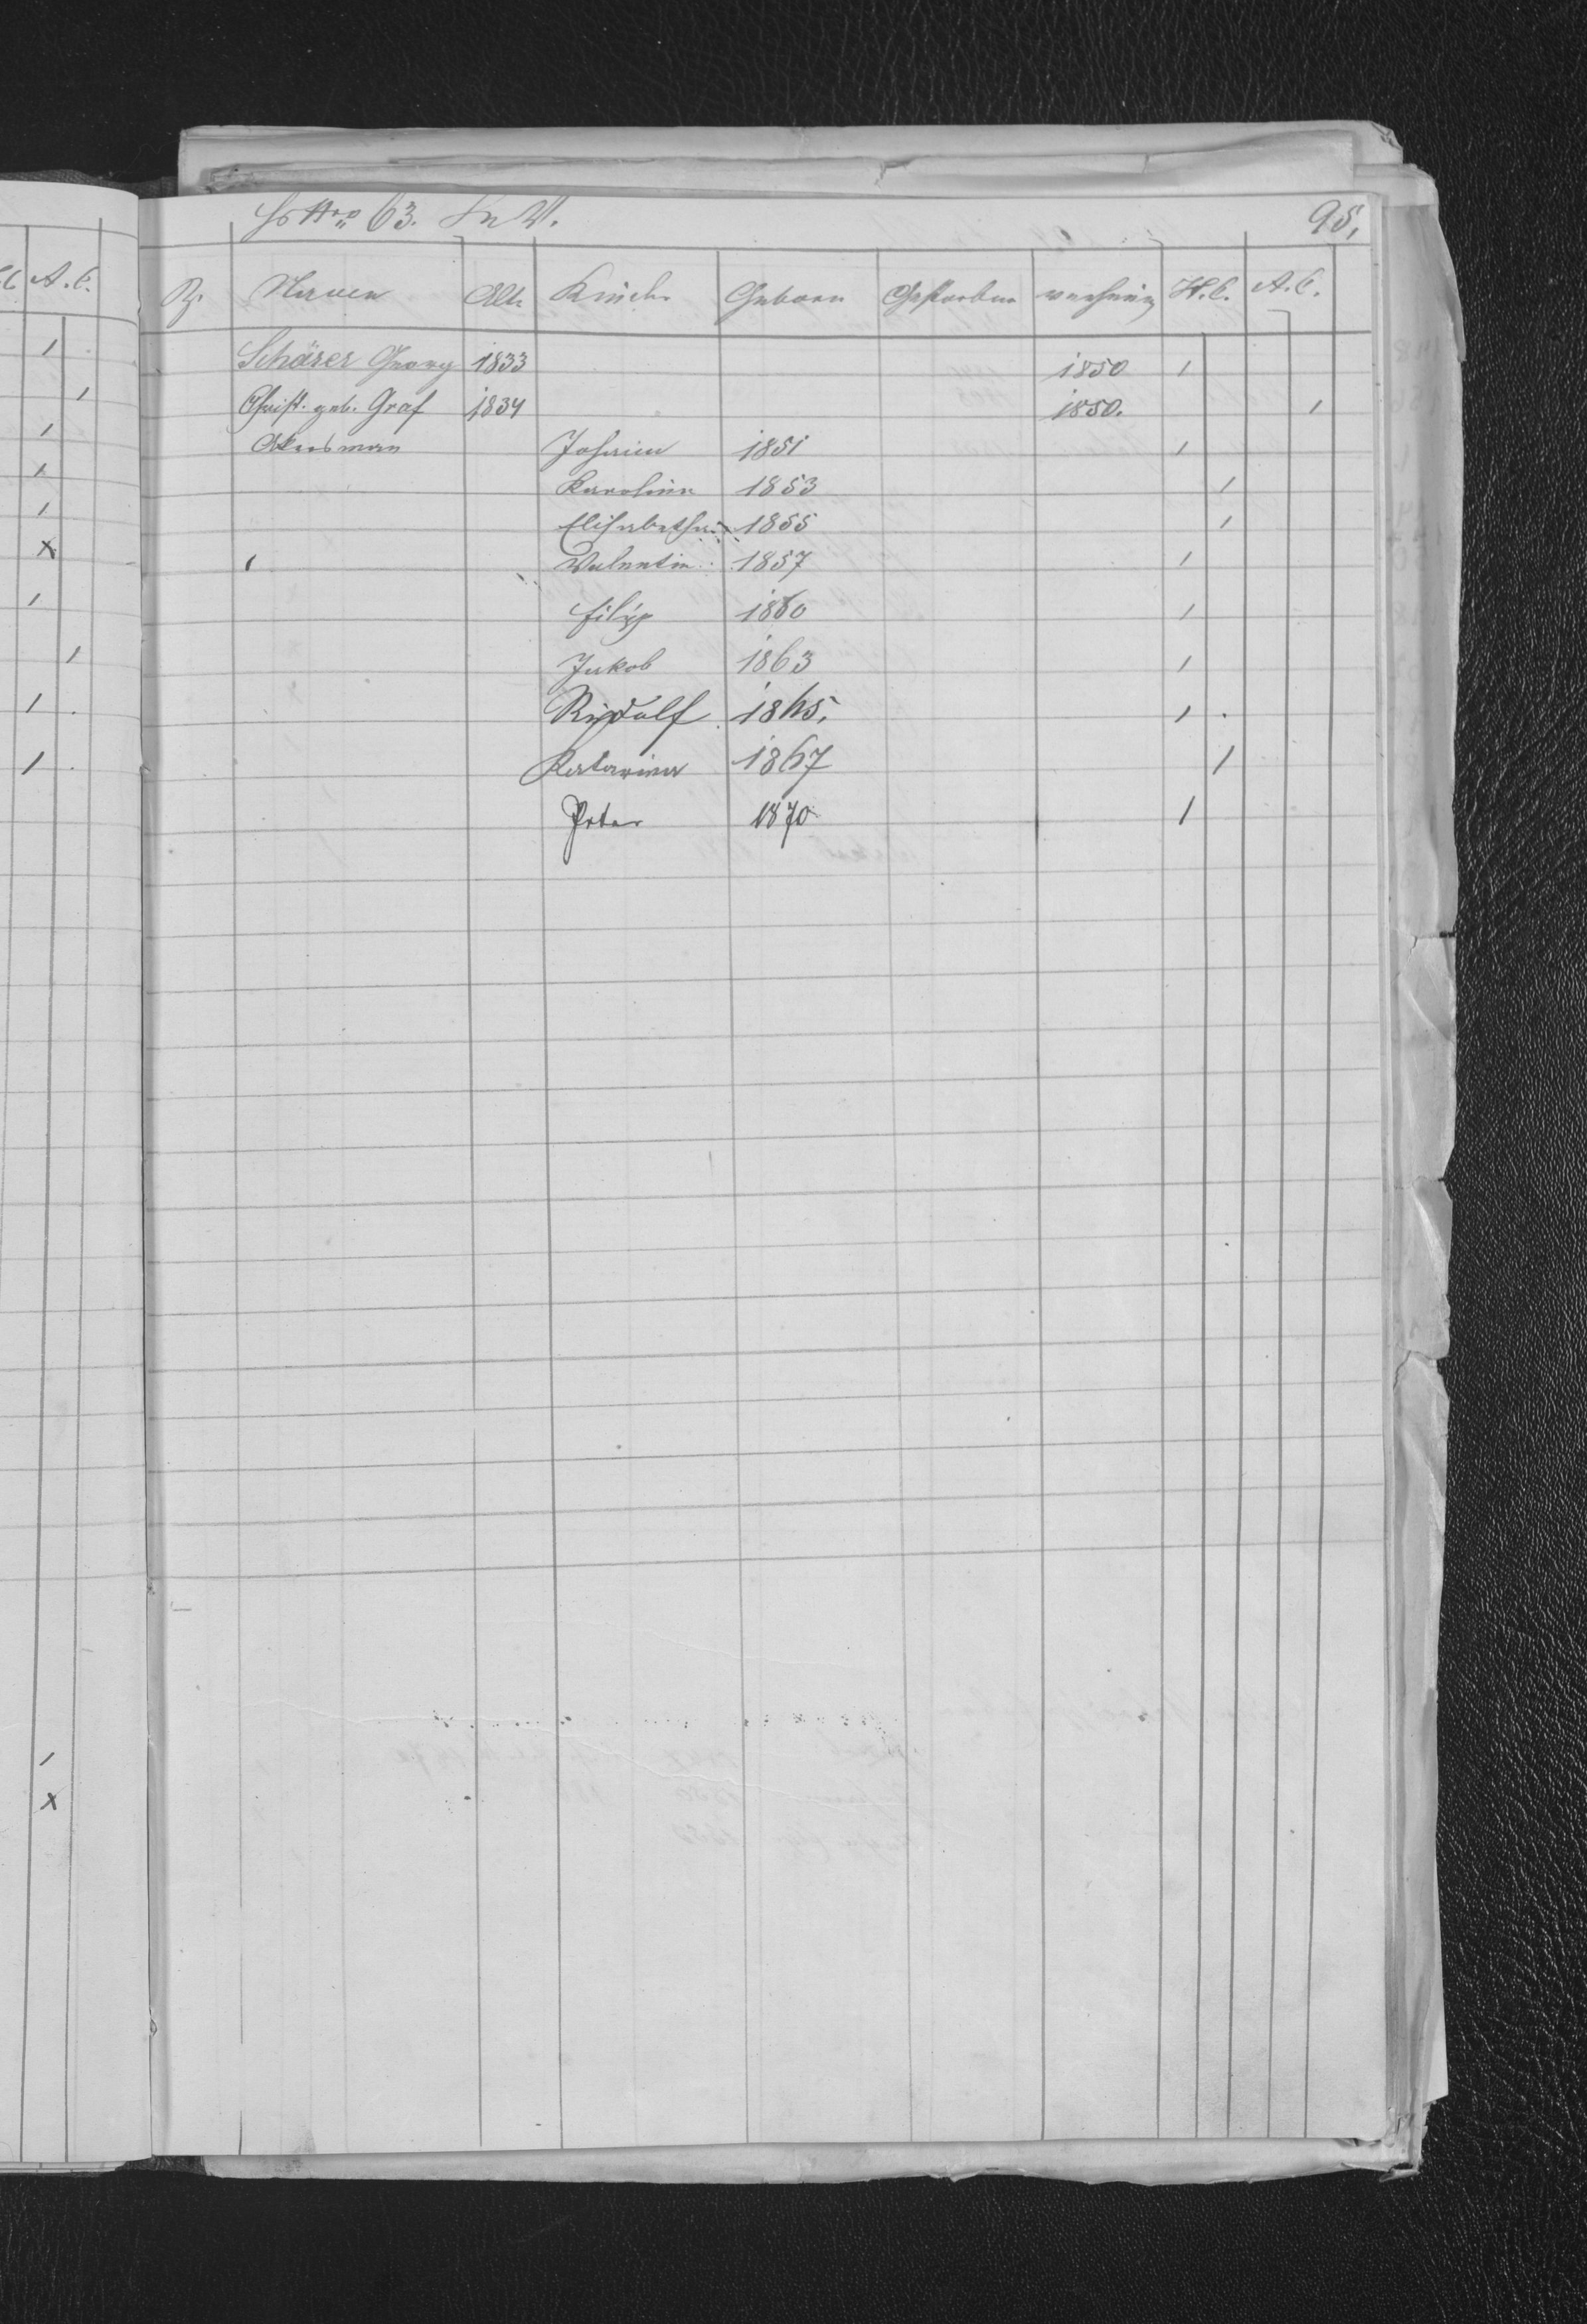 Hs Nro 63. 95.
Z. Namen Alte Kinder Geboren Gestorben H.C. A.C.
Schärer Georg 1833 1850 1
Christ. geb. Graf 1834 1850. 1
Akersman Johann 1851 1
Karolina 1853 1
Elisabetha 1855 1
Valentin 1857 1
Filip 1860 1
Jakob 1863 1
Rudolf 1865. 1
Katarina 1867 1
Peter 1870 1